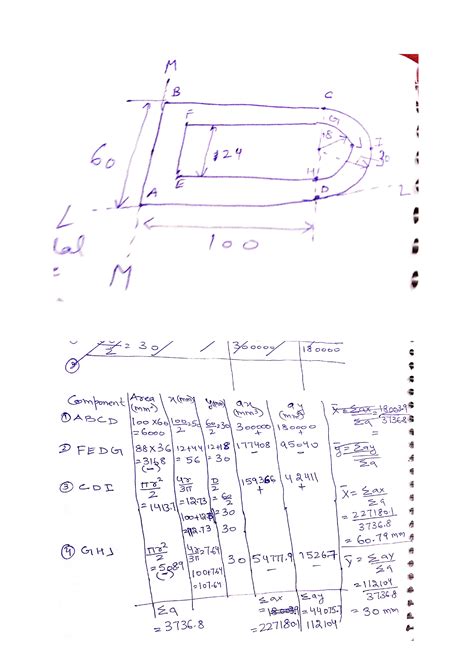 M
B
C
F
G
18
J
I
30
60
124
E
H
A
D
L
L
100
M
= 30
360000
180000
②
Component
Area (mm²)
x (mm)
y (mm)
ax (mm³)
ay (mm³)
① ABCD
100 x 60 = 6000
100/2 = 50
60/2 = 30
300000 +
180000 +
② FEDG
88 x 36 = 3168 (-)
12+44 = 56
12+18 = 30
177408 -
95040 -
③ CDI
πr²/2 = 1413.7
4r/3π = 12.73
100+12.73 = 112.73
D/2 = 60/2 = 30
159366 +
42411 +
④ GHJ
πr²/2 = 508.9 (-)
4r/3π = 7.64
100+7.64 = 107.64
30
54777.9 -
15267 -
Σa = 3736.8
Σax = 227180.1
Σay
112104
x̄ = Σax/Σa
3736.8
ȳ = Σay/Σa
x̄ = Σax/Σa
= 227180.1/3736.8
= 60.79 mm
ȳ = Σay/Σa
= 112104/3736.8
= 30 mm